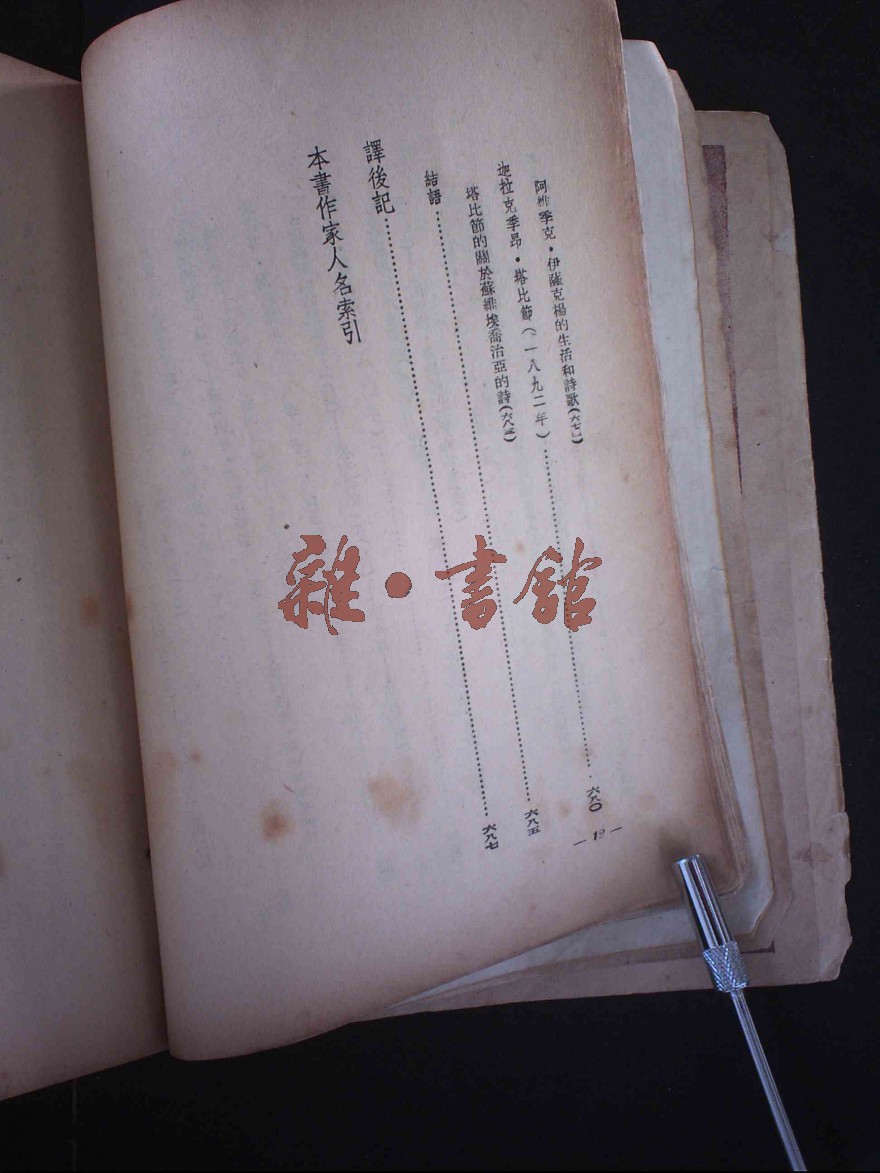 阿維季克・伊薩克楊的生活和詩歌(六七一)
迦拉克季昂・塔比節(一八九二年)……六八〇
塔比節的關於蘇維埃喬治亞的詩(六八三)
結語……六八五
譯後記……六八七
本書作家人名索引
雜・書館